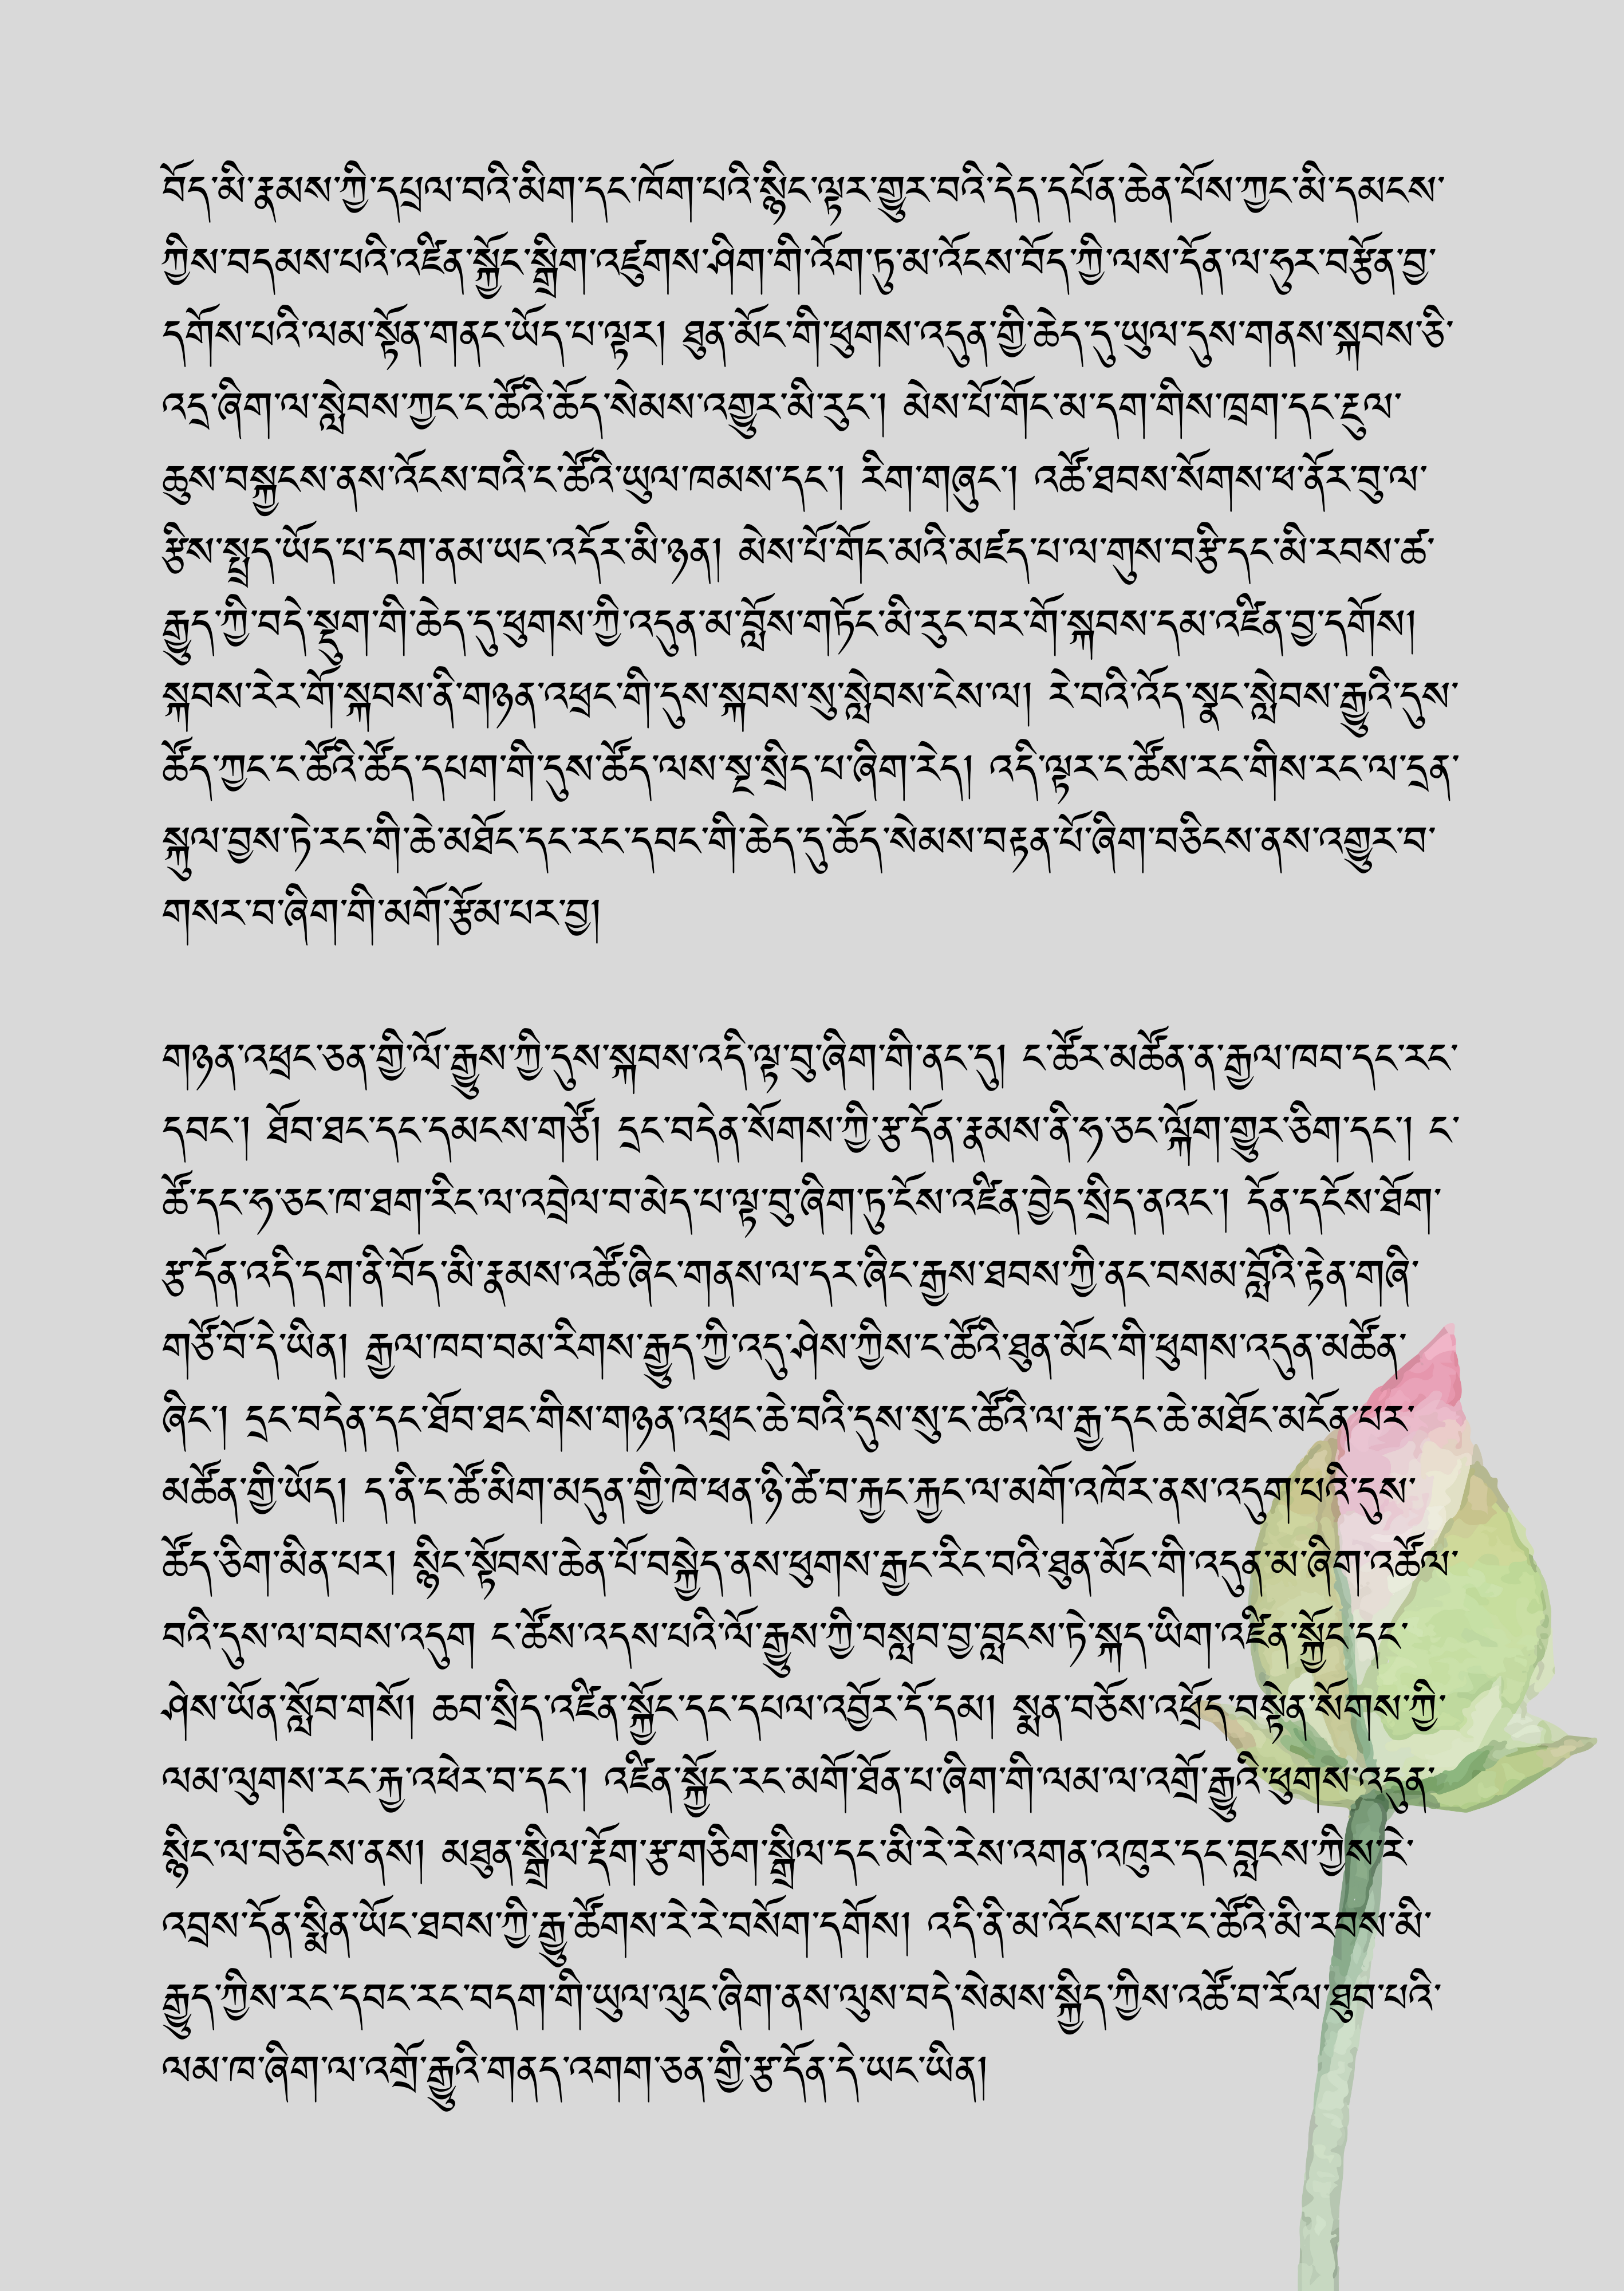 བོད་མི་རྣམས་ཀྱི་དཔྲལ་བའི་མིག་དང་ཁོག་པའི་སྙིང་ལྟར་གྱུར་བའི་དེད་དཔོན་ཆེན་པོས་ཀྱང་མི་དམངས་
ཀྱིས་བདམས་པའི་འཛིན་སྐྱོང་སྒྲིག་འཛུགས་ཤིག་གི་འོག་ཏུ་མ་འོངས་བོད་ཀྱི་ལས་དོན་ལ་ཧུར་བརྩོན་བྱ་
དགོས་པའི་ལམ་སྟོན་གནང་ཡོད་པ་ལྟར། ཐུན་མོང་གི་ཕུགས་འདུན་གྱི་ཆེད་དུ་ཡུལ་དུས་གནས་སྐབས་ཅི་
འདྲ་ཞིག་ལ་སླེབས་ཀྱང་ང་ཚོའི་ཆོད་སེམས་འགྱུར་མི་རུང་། མེས་པོ་གོང་མ་དག་གིས་ཁྲག་དང་རྔུལ་
ཆུས་བསྐྱངས་ནས་འོངས་བའི་ང་ཚོའི་ཡུལ་ཁམས་དང་། རིག་གཞུང་། འཚོ་ཐབས་སོགས་ཕ་ནོར་བུ་ལ་
རྩིས་སྤྲད་ཡོད་པ་དག་ནམ་ཡང་འདོར་མི་ཉན། མེས་པོ་གོང་མའི་མཛད་པ་ལ་གུས་བརྩི་དང་མི་རབས་ཚ་
རྒྱུད་ཀྱི་བདེ་སྡུག་གི་ཆེད་དུ་ཕུགས་ཀྱི་འདུན་མ་བློས་གཏོང་མི་རུང་བར་གོ་སྐབས་དམ་འཛིན་བྱ་དགོས།
སྐབས་རེར་གོ་སྐབས་ནི་གཉན་འཕྲང་གི་དུས་སྐབས་སུ་སླེབས་ངེས་ལ། རེ་བའི་འོད་སྣང་སླེབས་རྒྱུའི་དུས་
ཚོད་ཀྱང་ང་ཚོའི་ཚོད་དཔག་གི་དུས་ཚོད་ལས་སྔ་སྲིད་པ་ཞིག་རེད། འདི་ལྟར་ང་ཚོས་རང་གིས་རང་ལ་དྲན་
སྐུལ་བྱས་ཏེ་རང་གི་ཆེ་མཐོང་དང་རང་དབང་གི་ཆེད་དུ་ཆོད་སེམས་བརྟན་པོ་ཞིག་བཅིངས་ནས་འགྱུར་བ་
གསར་བ་ཞིག་གི་མགོ་རྩོམ་པར་བྱ།
གཉན་འཕྲང་ཅན་གྱི་ལོ་རྒྱུས་ཀྱི་དུས་སྐབས་འདི་ལྟ་བུ་ཞིག་གི་ནང་དུ། ང་ཚོར་མཚོན་ན་རྒྱལ་ཁབ་དང་རང་
དབང་། ཐོབ་ཐང་དང་དམངས་གཙོ། དྲང་བདེན་སོགས་ཀྱི་རྩ་དོན་རྣམས་ནི་ཧ་ཅང་ལྐོག་གྱུར་ཅིག་དང་། ང་
ཚོ་དང་ཧ་ཅང་ཁ་ཐག་རིང་ལ་འབྲེལ་བ་མེད་པ་ལྟ་བུ་ཞིག་ཏུ་ངོས་འཛིན་བྱེད་སྲིད་ནའང་། དོན་དངོས་ཐོག་
རྩ་དོན་འདི་དག་ནི་བོད་མི་རྣམས་འཚོ་ཞིང་གནས་ལ་དར་ཞིང་རྒྱས་ཐབས་ཀྱི་ནང་བསམ་བློའི་རྟེན་གཞི་
གཙོ་བོ་དེ་ཡིན། རྒྱལ་ཁབ་བམ་རིགས་རྒྱུད་ཀྱི་འདུ་ཤེས་ཀྱིས་ང་ཚོའི་ཐུན་མོང་གི་ཕུགས་འདུན་མཚོན་
ཞིང་། དྲང་བདེན་དང་ཐོབ་ཐང་གིས་གཉན་འཕྲང་ཆེ་བའི་དུས་སུ་ང་ཚོའི་ལ་རྒྱ་དང་ཆེ་མཐོང་མངོན་པར་
མཚོན་གྱི་ཡོད། ད་ནི་ང་ཚོ་མིག་མདུན་གྱི་ཁེ་ཕན་ཉི་ཚེ་བ་རྐྱང་རྐྱང་ལ་མགོ་འཁོར་ནས་འདུག་པའི་དུས་
ཚོད་ཅིག་མིན་པར། སྙིང་སྟོབས་ཆེན་པོ་བསྐྱེད་ནས་ཕུགས་རྒྱང་རིང་བའི་ཐུན་མོང་གི་འདུན་མ་ཞིག་འཚོལ་
བའི་དུས་ལ་བབས་འདུག ང་ཚོས་འདས་པའི་ལོ་རྒྱུས་ཀྱི་བསླབ་བྱ་བླངས་ཏེ་སྐད་ཡིག་འཛིན་སྐྱོང་དང་
ཤེས་ཡོན་སློབ་གསོ། ཆབ་སྲིད་འཛིན་སྐྱོང་དང་དཔལ་འབྱོར་དོ་དམ། སྨན་བཅོས་འཕྲོད་བསྟེན་སོགས་ཀྱི་
ལམ་ལུགས་རང་རྐྱ་འཕེར་བ་དང་། འཛིན་སྐྱོང་རང་མགོ་ཐོན་པ་ཞིག་གི་ལམ་ལ་འགྲོ་རྒྱུའི་ཕུགས་འདུན་
སྙིང་ལ་བཅིངས་ནས། མཐུན་སྒྲིལ་རྡོག་རྩ་གཅིག་སྒྲིལ་དང་མི་རེ་རེས་འགན་འཁུར་དང་བླངས་ཀྱིས་རེ་
འབྲས་དོན་སྨིན་ཡོང་ཐབས་ཀྱི་རྒྱུ་ཚོགས་རེ་རེ་བསོག་དགོས། འདི་ནི་མ་འོངས་པར་ང་ཚོའི་མི་རབས་མི་
རྒྱུད་ཀྱིས་རང་དབང་རང་བདག་གི་ཡུལ་ལུང་ཞིག་ནས་ལུས་བདེ་སེམས་སྐྱིད་ཀྱིས་འཚོ་བ་རོལ་ཐུབ་པའི་
ལམ་ཁ་ཞིག་ལ་འགྲོ་རྒྱུའི་གནད་འགག་ཅན་གྱི་རྩ་དོན་དེ་ཡང་ཡིན།